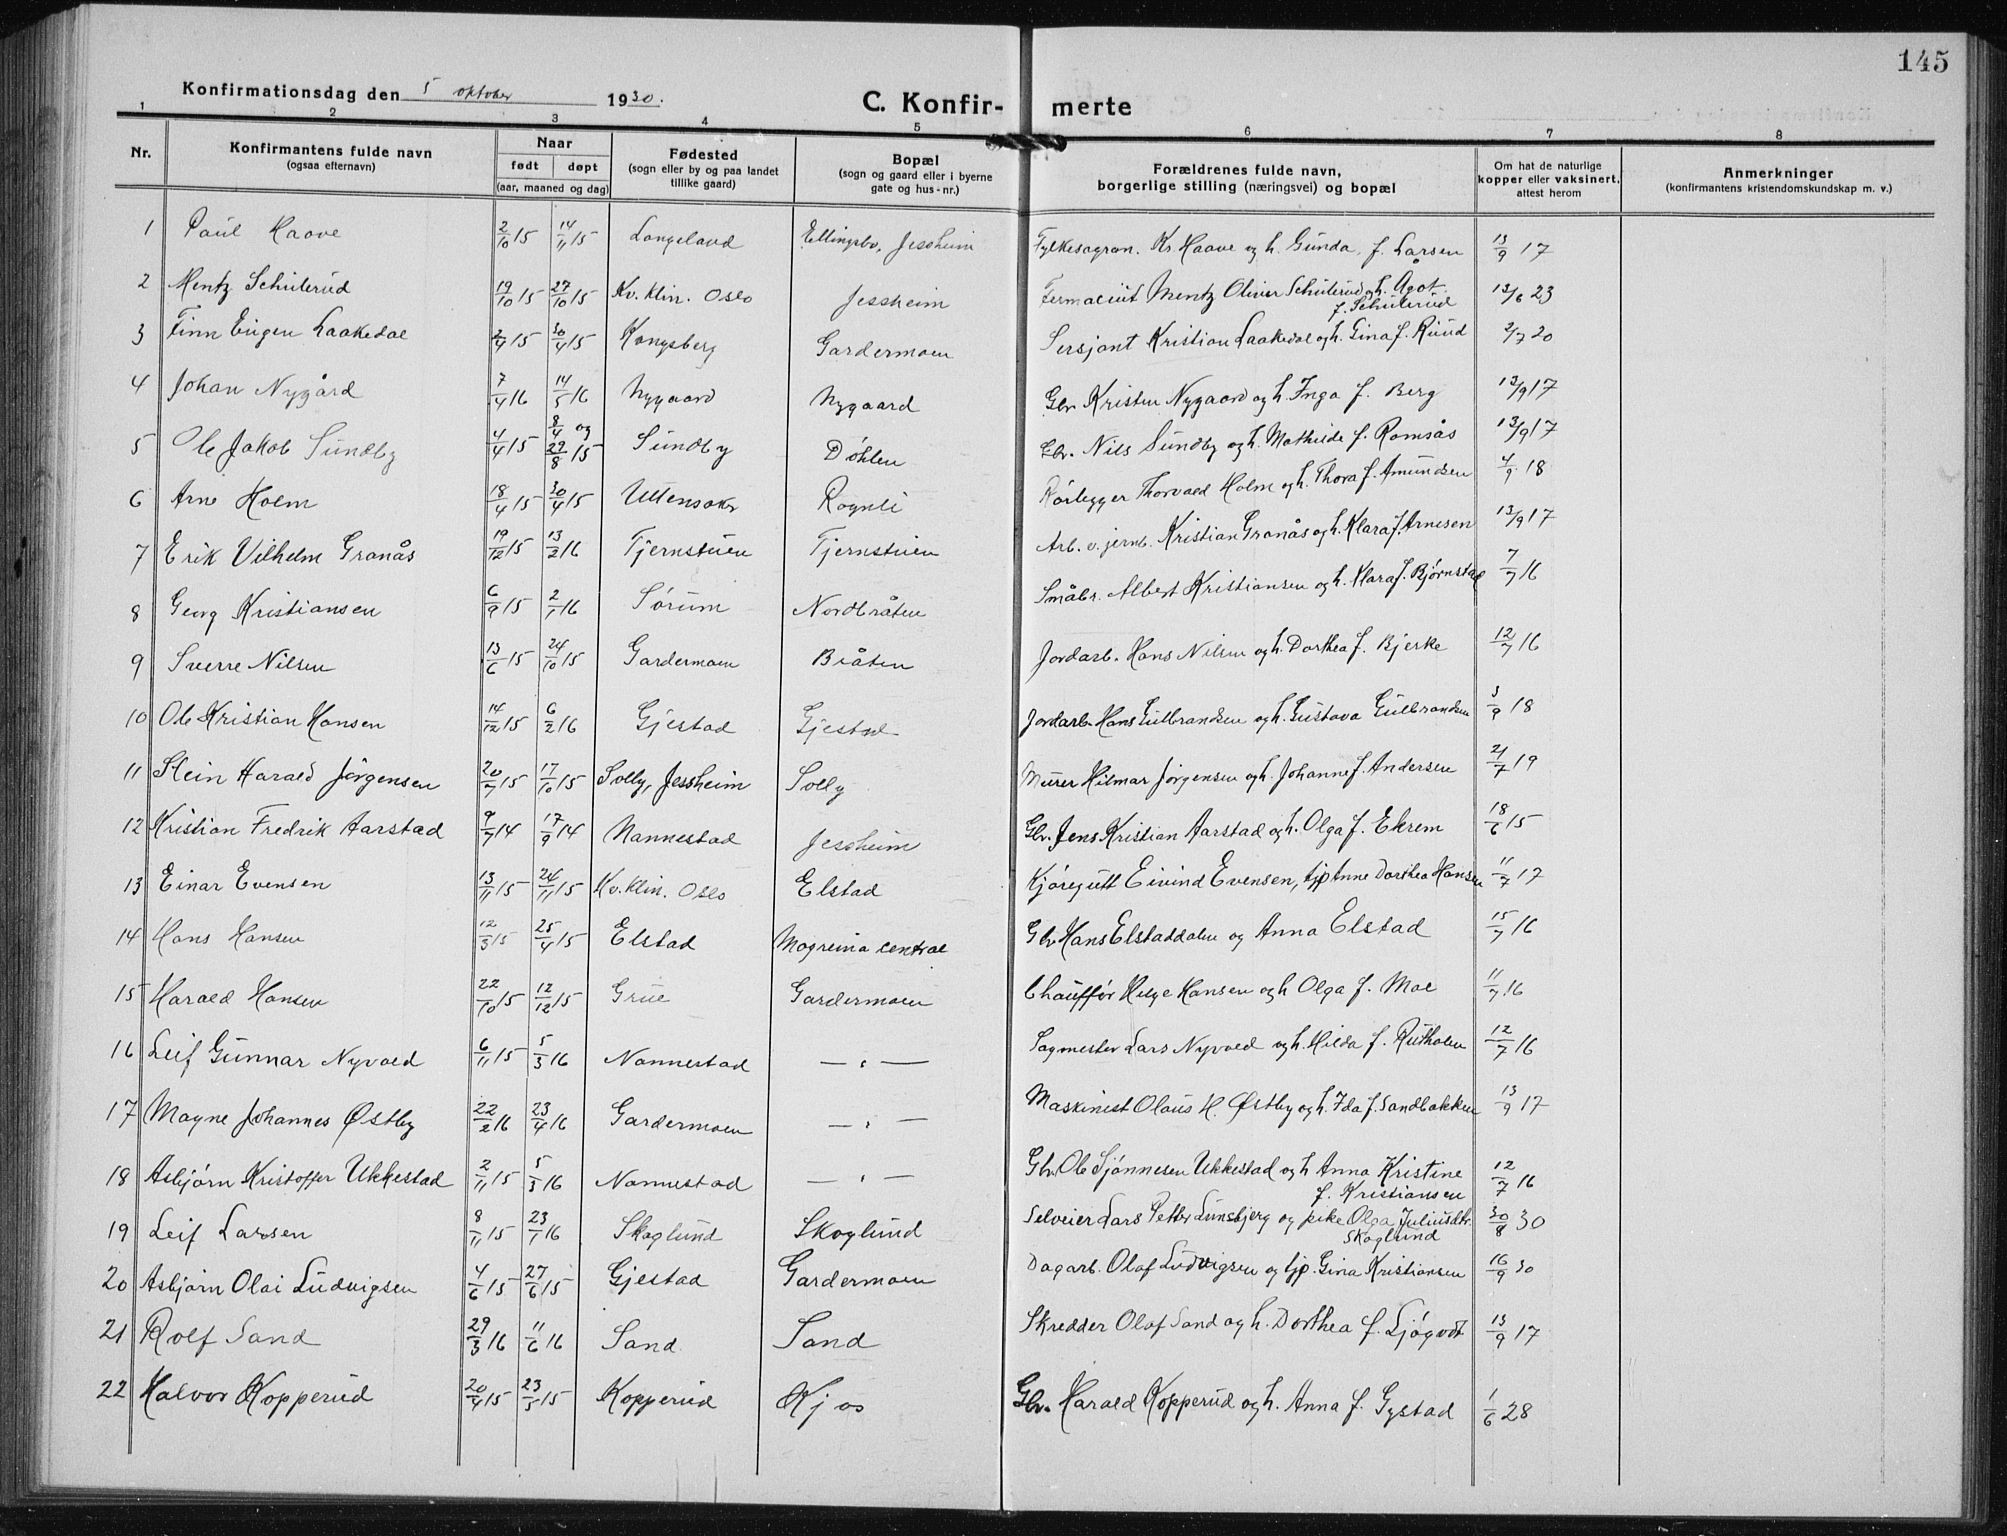 145
Konfirmationsdag den 5 oktober 1930.
C. Konfir- merte
1 2 3 4 5 6 7 8
Nr. Konfirmantens fulde navn (ogsaa efternavn) Naar født døpt (aar, maaned og dag) Fødested (sogn eller by og paa landet tillike gaard) Bopæl (sogn og gaard eller i byerne gate og hus-nr.) Forældrenes fulde navn, borgerlige stilling (næringsvei) og bopæl Om hat de naturlige kopper eller vaksinert, attest herom Anmerkninger (konfirmantens kristendomskundskap m. v.)
1 Paul Haave 2/10 15 14/11 15 Langeland Ellingsbo, Jessheim Fylkesagron. Kr. Haave og h. Gunda f. Larsen 13/9 17
2 Mentz Schulerud 19/10 15 27/10 15 Kv. klin. Oslo Jessheim Mentz Oliver Schulerud og h. Ågot f. Schulerud 13/6 23
3 Finn Eugen Laakedal 2/4 15 30/4 15 Kongsberg Gardermoen Sersjant Kristian Laakedal og h. Gina f. Ruud 2/7 20
4 Johan Nygård 7/4 16 14/5 16 Nygaard Nygaard Gbr. Kristen Nygaard og h. Inga f. Berg 13/9 17
5 Ole Jakob Sundby 4/4 15 8/4 og 29/8 15 Sundby Døhlen Gbr. Nils Sundby og h. Mathilde f. Romsås 13/9 17
6 Arne Holm 18/4 15 30/4 15 Ullensaker Rognli Rørlegger Thorvald Holm og h. Thora f. Amundsen 4/9 18
7 Erik Vilhelm Granås 19/12 15 13/2 16 Tjernstuen Tjernstuen Arb. v. jernb. Kristian Granås og h. Klara f. Arnesen 13/9 17
8 Georg Kristiansen 6/9 15 2/1 16 Sørum Nordbråten Småbr. Albert Kristiansen og h. Klara f. Bjørnstad 7/7 16
9 Sverre Nilsen 13/6 15 24/10 15 Gardermoen Bråten Jordarb. Hans Nilsen og h. Dorthea f. Bjerke 12/7 16
10 Ole Kristian Hansen 14/12 15 6/2 16 Gjestad Gjestad Jordarb. Hans Gulbrandsen og h. Gustava Gulbrandsen 3/9 18
11 Stein Harald Jørgensen 20/7 15 17/10 15 Solby, Jessheim Solby Murer Hilmar Jørgensen og h. Johanne f. Andersen 21/7 19
12 Kristian Fredrik Aarstad 9/7 14 17/9 14 Nannestad Jessheim Gbr. Jens Kristian Aarstad og h. Olga f. Ekrem 18/6 15
13 Einar Evensen 13/11 15 24/11 15 Kv. klin. Oslo Elstad Kjøregutt Eivind Evensen, tjp Anne Dorthea Hansen 11/7 17
14 Hans Hansen 12/3 15 25/4 15 Elstad Mogreina central Gbr Hans Elstaddalen og Anna Elstad 15/7 16
15 Harald Hansen 22/10 15 12/12 15 Grue Gardermoen Chauffør Helge Hansen og h Olga f. Moe 11/7 16
16 Leif Gunnar Nyvold 6/11 15 5/3 16 Nannestad — " — Sagmester Lars Nyvold og h. Hilda f. Rutholen 12/7 16
17 Magne Johannes Østby 22/2 16 23/4 16 Gardermoen — " — Maskinist Olaus H. Østby og h. Ida f. Sandbakken 13/9 17
18 Asbjørn Kristoffer Ukkestad 2/11 15 5/3 16 Nannestad — " — Gbr. Ole Sjønnesen Ukkestad og h Anna Kristine f. Kristiansen 12/7 16
19 Leif Larsen 8/11 15 23/1 16 Skoglund Skoglund Selveier Lars Petter Lunsbjerg og pike Olga Juliusdtr. Skoglund 30/8 30
20 Asbjørn Olai Ludvigsen 4/6 15 27/6 15 Gjestad Gardermoen Dagarb. Olaf Ludvigsen og tjp. Gina Kristiansen 16/9 30
21 Rolf Sand 29/3 16 11/6 16 Sand Sand Skredder Olaf Sand og h. Dorthea f. Ljøgodt 13/9 17
22 Halvor Kopperud 20/4 15 23/5 15 Kopperud Kjos Gbr. Harald Kopperud og h. Anna f. Gystad 1/6 28